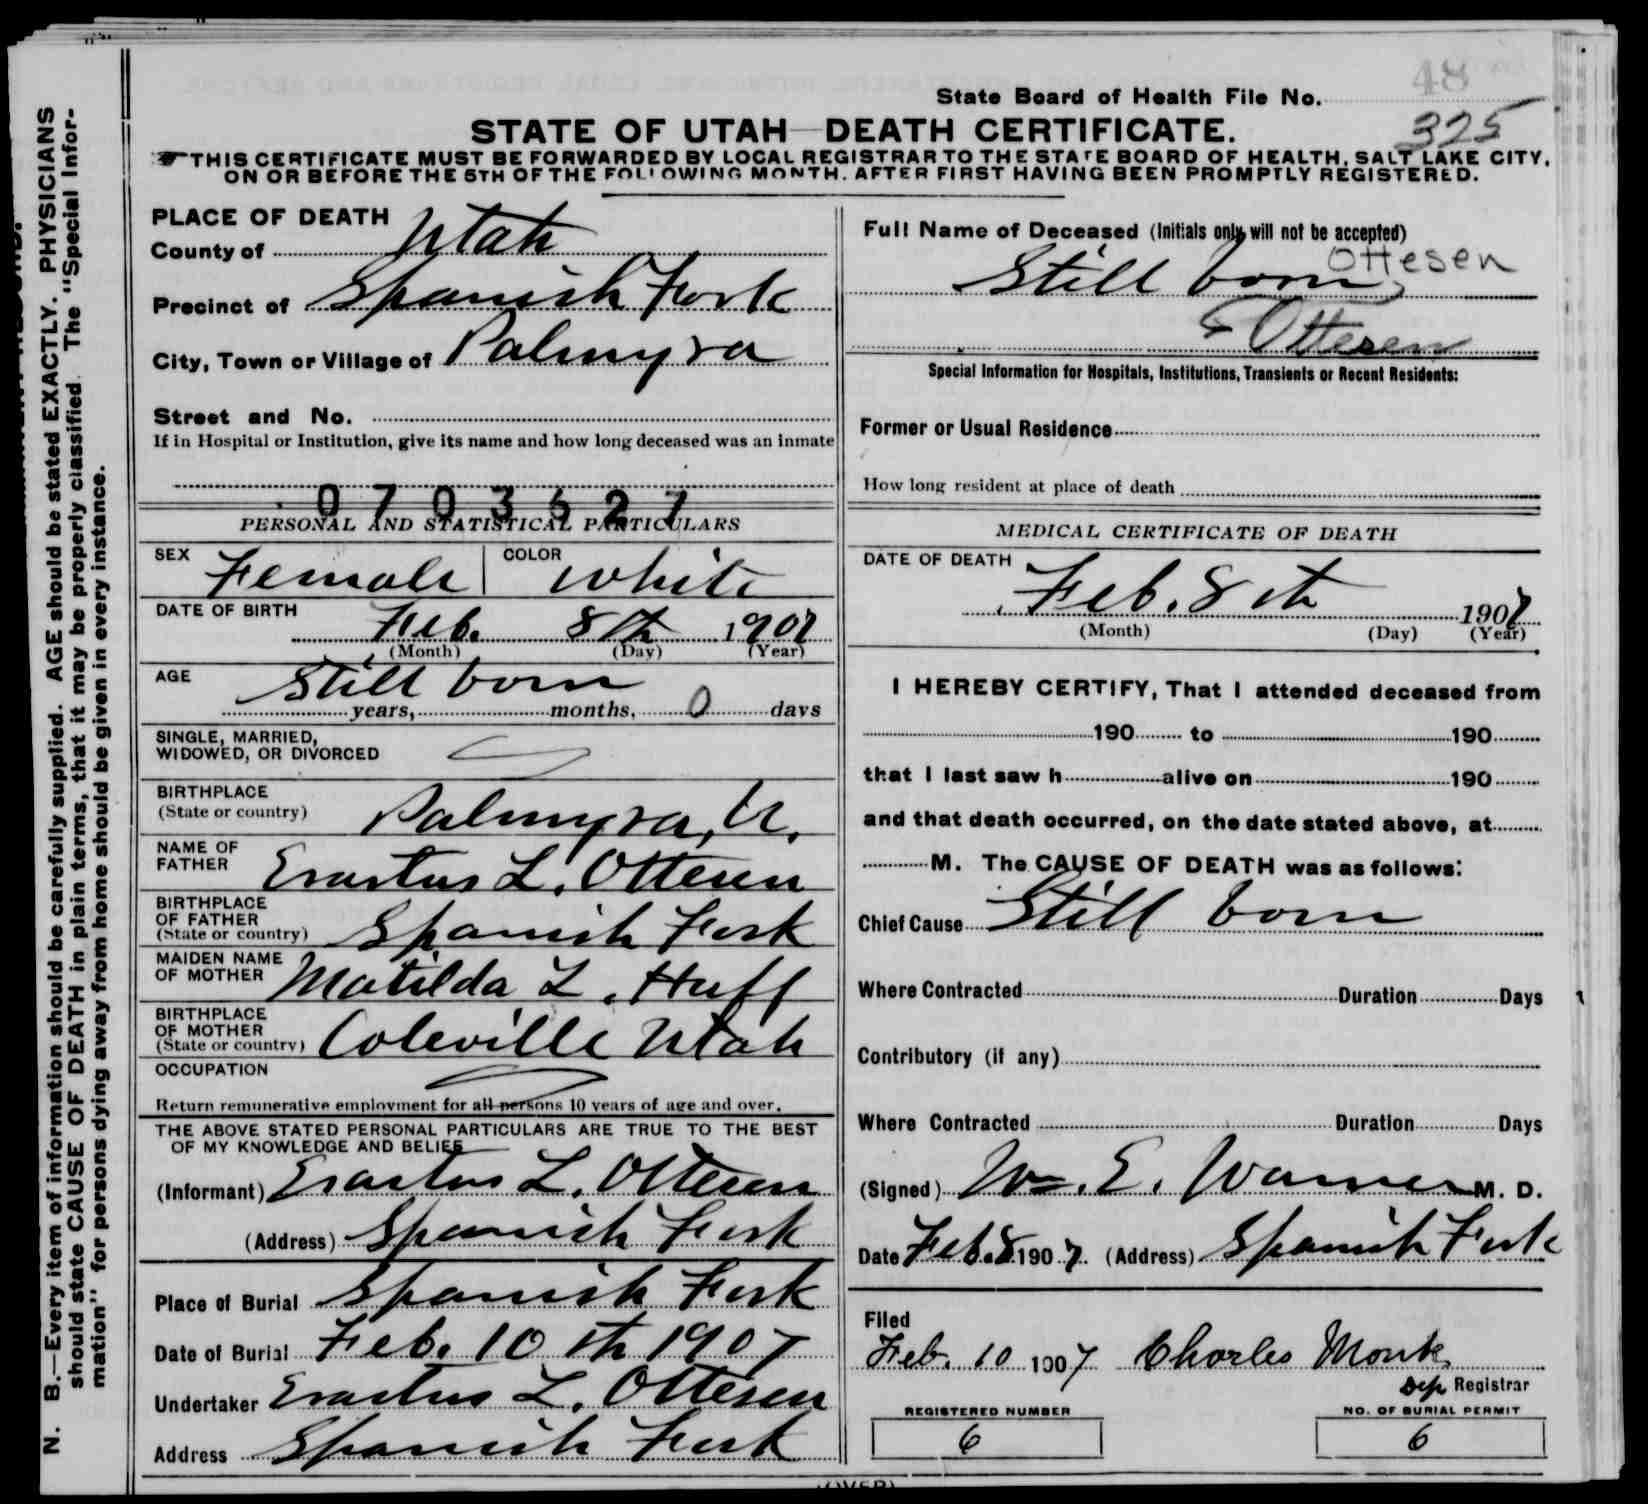 48
State Board of Health File No. 325
STATE OF UTAH—DEATH CERTIFICATE.
THIS CERTIFICATE MUST BE FORWARDED BY LOCAL REGISTRAR TO THE STATE BOARD OF HEALTH, SALT LAKE CITY,
ON OR BEFORE THE 5TH OF THE FOLLOWING MONTH, AFTER FIRST HAVING BEEN PROMPTLY REGISTERED.
N. B.—Every item of information should be carefully supplied. AGE should be stated EXACTLY. PHYSICIANS
should state CAUSE OF DEATH in plain terms, that it may be properly classified. The "Special Infor-
mation" for persons dying away from home should be given in every instance.
PLACE OF DEATH
County of Utah
Precinct of Spanish Fork
City, Town or Village of Palmyra
Street and No.
If in Hospital or Institution, give its name and how long deceased was an inmate
0703627
PERSONAL AND STATISTICAL PARTICULARS
SEX Female COLOR White
DATE OF BIRTH
Feb. 8th 1907
(Month) (Day) (Year)
AGE Still born
years, months, 0 days
SINGLE, MARRIED,
WIDOWED, OR DIVORCED
BIRTHPLACE
(State or country) Palmyra, U.
NAME OF
FATHER Erastus L. Ottesen
BIRTHPLACE
OF FATHER
(State or country) Spanish Fork
MAIDEN NAME
OF MOTHER Matilda L. Huff
BIRTHPLACE
OF MOTHER
(State or country) Coleville Utah
OCCUPATION
Return remunerative employment for all persons 10 years of age and over.
THE ABOVE STATED PERSONAL PARTICULARS ARE TRUE TO THE BEST
OF MY KNOWLEDGE AND BELIEF
(Informant) Erastus L. Ottesen
(Address) Spanish Fork
Place of Burial Spanish Fork
Date of Burial Feb. 10th 1907
Undertaker Erastus L. Ottesen
Address Spanish Fork
Full Name of Deceased (Initials only will not be accepted)
Still born Ottesen
Ottesen
Special Information for Hospitals, Institutions, Transients or Recent Residents:
Former or Usual Residence
How long resident at place of death
MEDICAL CERTIFICATE OF DEATH
DATE OF DEATH
Feb. 8th 1907
(Month) (Day) (Year)
I HEREBY CERTIFY, That I attended deceased from
190 to 190
that I last saw h alive on 190
and that death occurred, on the date stated above, at
M. The CAUSE OF DEATH was as follows:
Chief Cause Still born
Where Contracted Duration Days
Contributory (if any)
Where Contracted Duration Days
(Signed) Wm. E. Warner M. D.
Date Feb. 8 1907. (Address) Spanish Fork
Filed
Feb. 10 1907 Charles Monk
Dep Registrar
REGISTERED NUMBER NO. OF BURIAL PERMIT
6 6
(OVER)